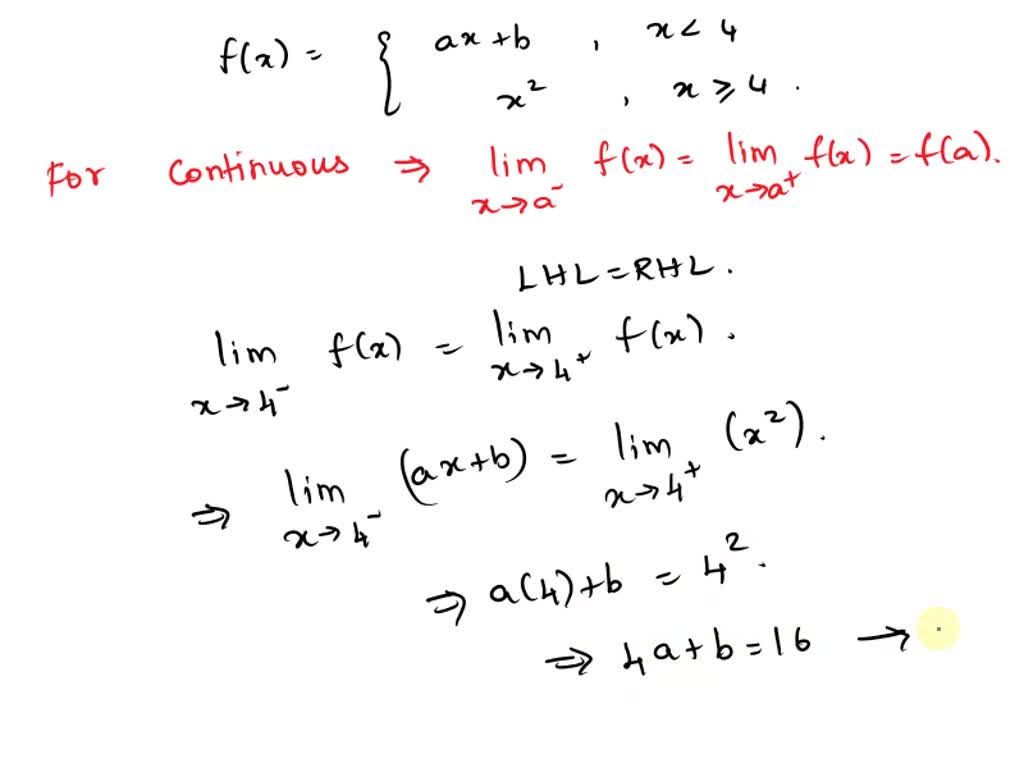 f(x) = { ax + b , x < 4
x² , x ≥ 4 .
For Continuous ⇒ lim x→a⁻ f(x) = lim x→a⁺ f(x) = f(a).
LHL = RHL .
lim x→4⁻ f(x) = lim x→4⁺ f(x) .
⇒ lim x→4⁻ (ax+b) = lim x→4⁺ (x²) .
⇒ a(4)+b = 4² .
⇒ 4a+b = 16 →